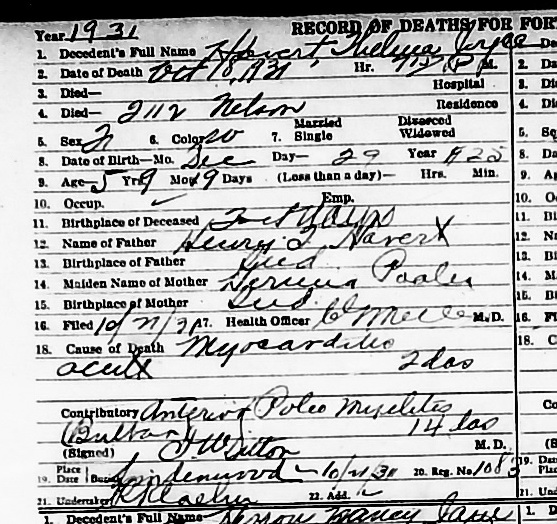 Year 1931 RECORD OF DEATHS FOR FOR
1. Decedent's Full Name Havert Thelma Joyce
2. Date of Death Oct 18, 1931 Hr. P M.
3. Died— Hospital
4. Died— 2112 Nelson Residence
5. Sex F 6. Color W 7. Married Single Divorced Widowed
8. Date of Birth—Mo. Dec Day— 29 Year 1925
9. Age— 5 Yrs 9 Mo 19 Days (Less than a day)— Hrs. Min.
10. Occup. Emp.
11. Birthplace of Deceased Fort Wayne
12. Name of Father Henry F. Havert
13. Birthplace of Father Ind.
14. Maiden Name of Mother Pooler
15. Birthplace of Mother Ind.
16. Filed 10/21/31 17. Health Officer M.D.
18. Cause of Death Myocarditis
acute 2 das
Contributory Anterior Polio Myelitis
(Bulbar) 14 das
(Signed) M.D.
19. Place Date Bur. Lindenwood — 10/21/31 20. Reg. No. 108
21. Undertaker 22. Add.
1. Decedent's Full Name Nancy Jane